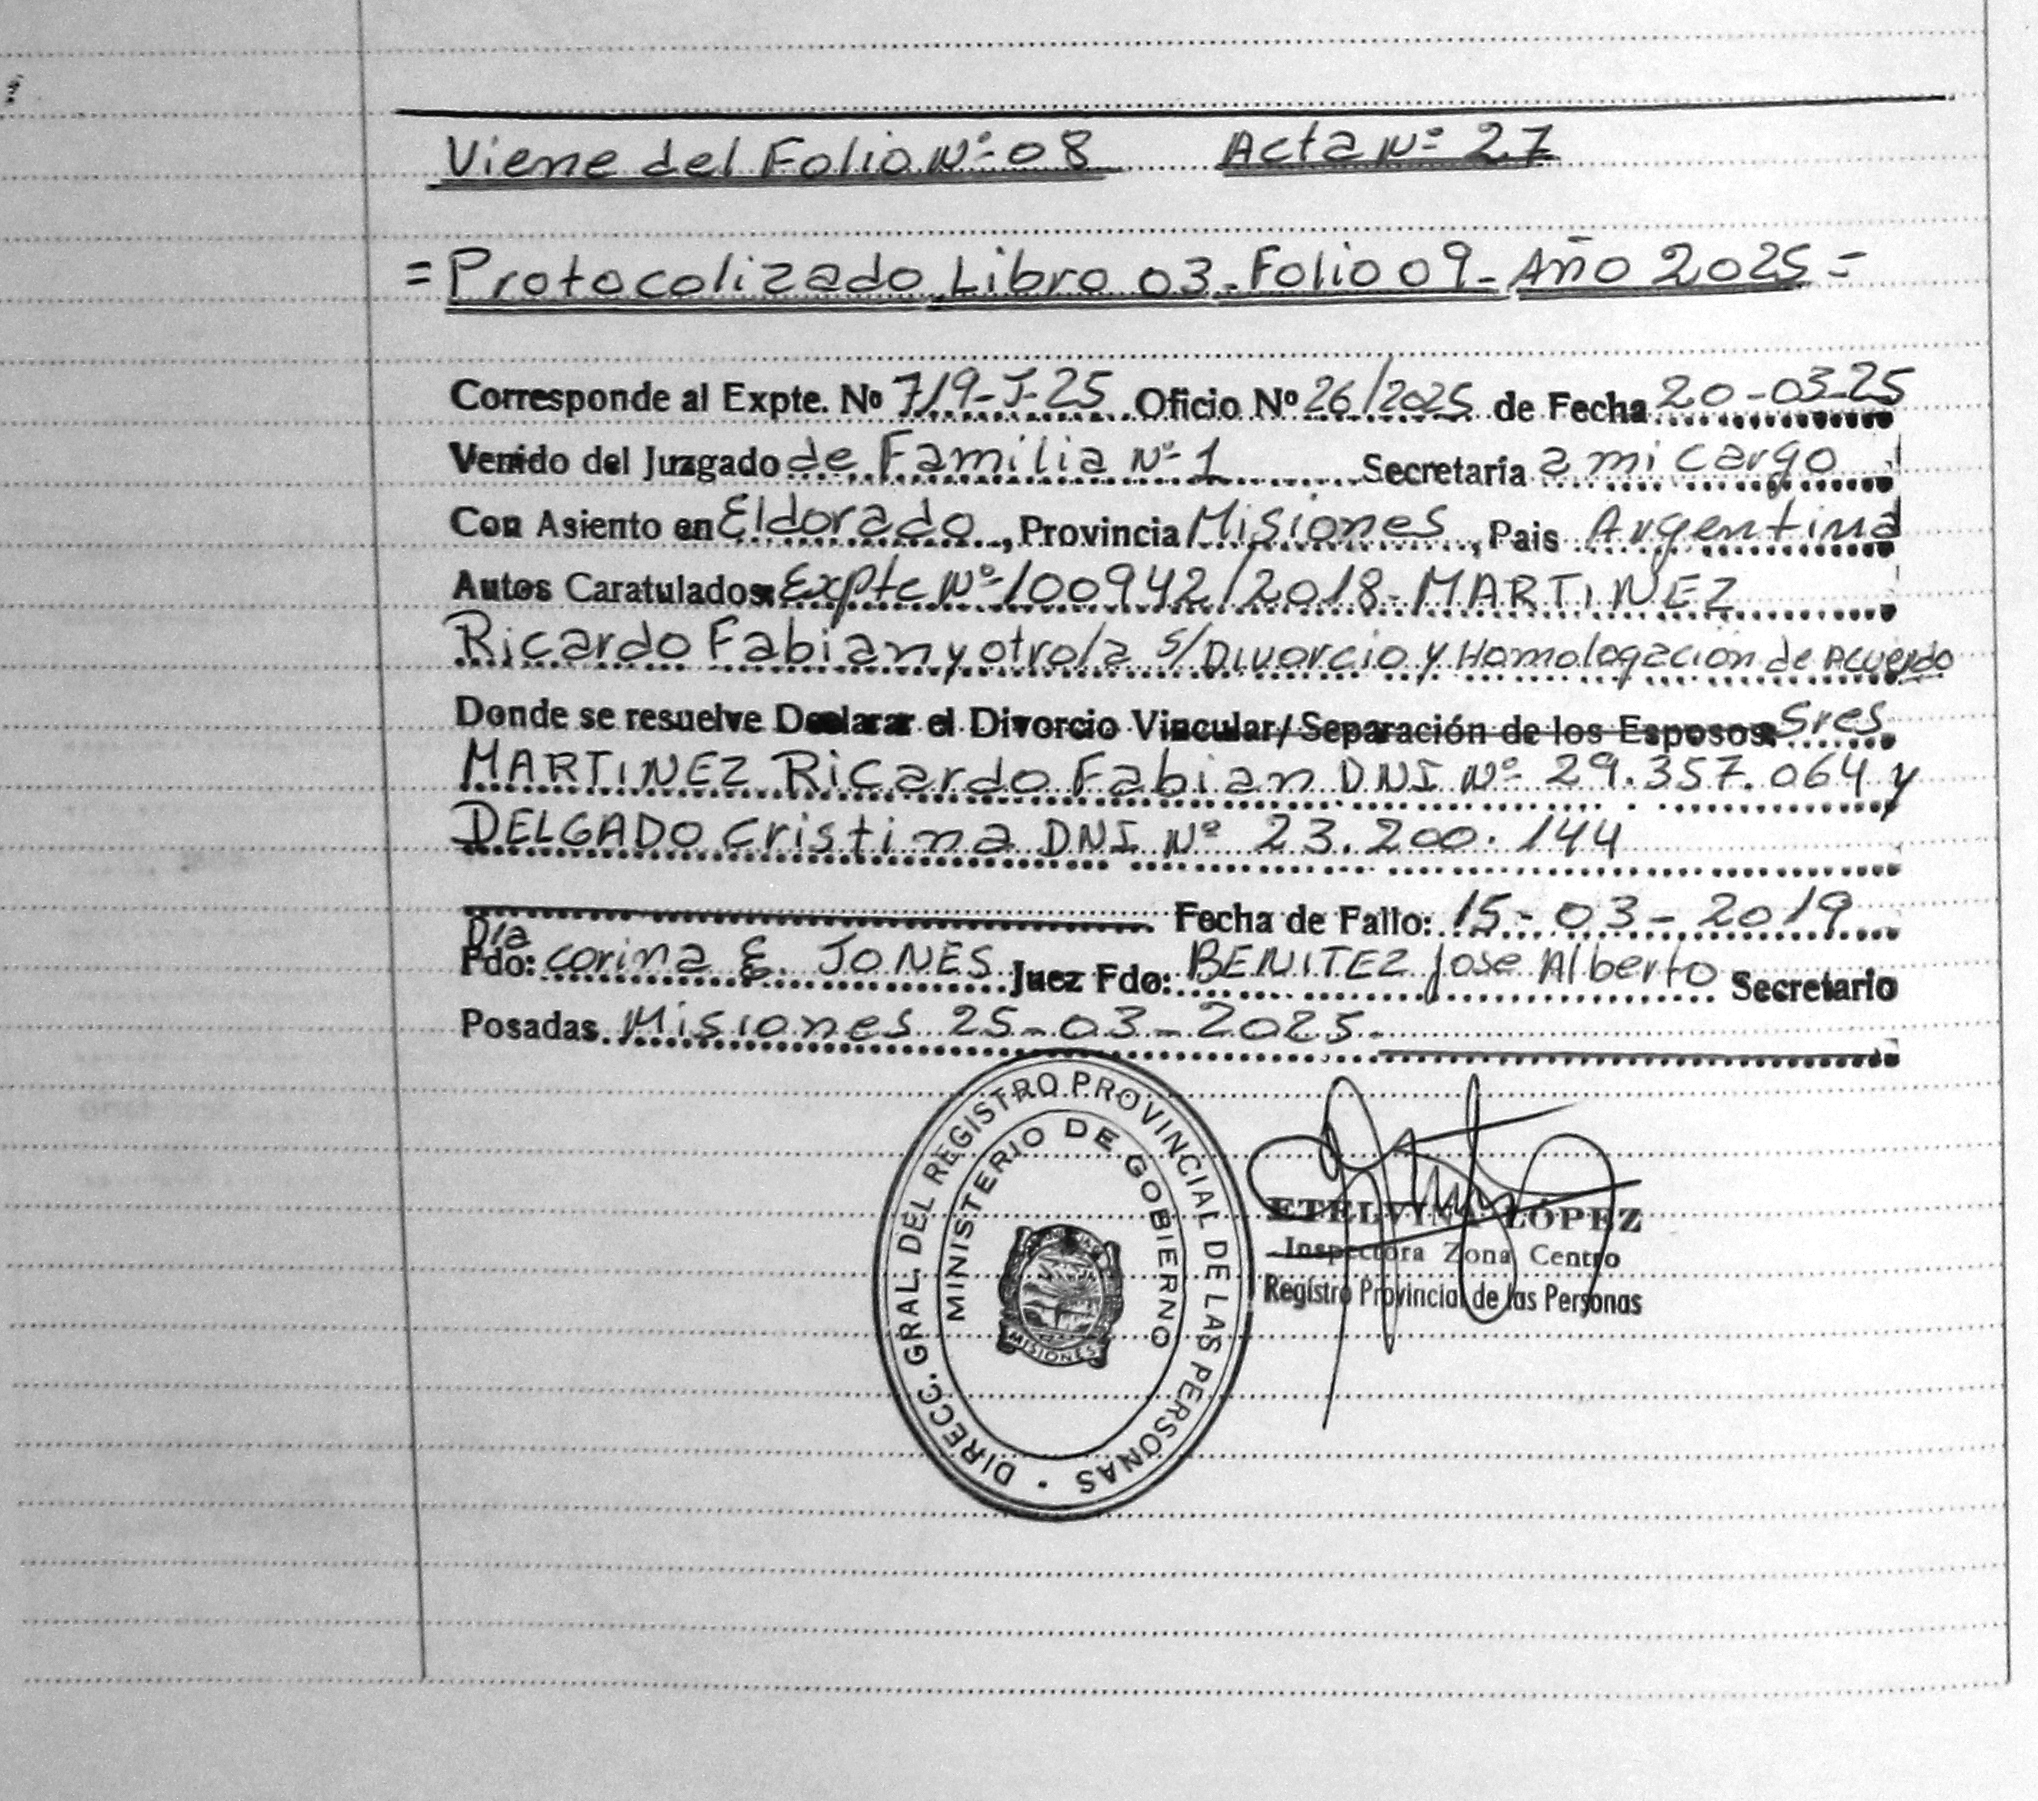 Viene del Folio Nº 08 Acta Nº 27
= Protocolizado Libro 03 - Folio 09 - Año 2025 =
Corresponde al Expte. Nº 719-J-25 Oficio Nº 26/2025 de Fecha 20-03-25
Venido del Juzgado de Familia Nº 1 Secretaría a mi cargo
Con Asiento en Eldorado, Provincia Misiones, Pais Argentina
Autos Caratulados: Expte Nº 100942/2018- MARTINEZ
Ricardo Fabian y otro/a s/Divorcio y Homologacion de Acuerdo
Donde se resuelve Declarar el Divorcio Vincular/Separación de los Esposos: Sres
MARTINEZ Ricardo Fabian DNI Nº 29.357.064 y
DELGADO Cristina DNI Nº 23.200.144
Fecha de Fallo: 15-03-2019
Dra
Fdo: Corina E. JONES Juez Fdo: BENITEZ Jose Alberto Secretario
Posadas Misiones 25-03-2025-
DIRECC. GRAL. DEL REGISTRO PROVINCIAL DE LAS PERSONAS
MINISTERIO DE GOBIERNO
MISIONES
ETELVINA LÓPEZ
Inspectora Zona Centro
Registro Provincial de las Personas